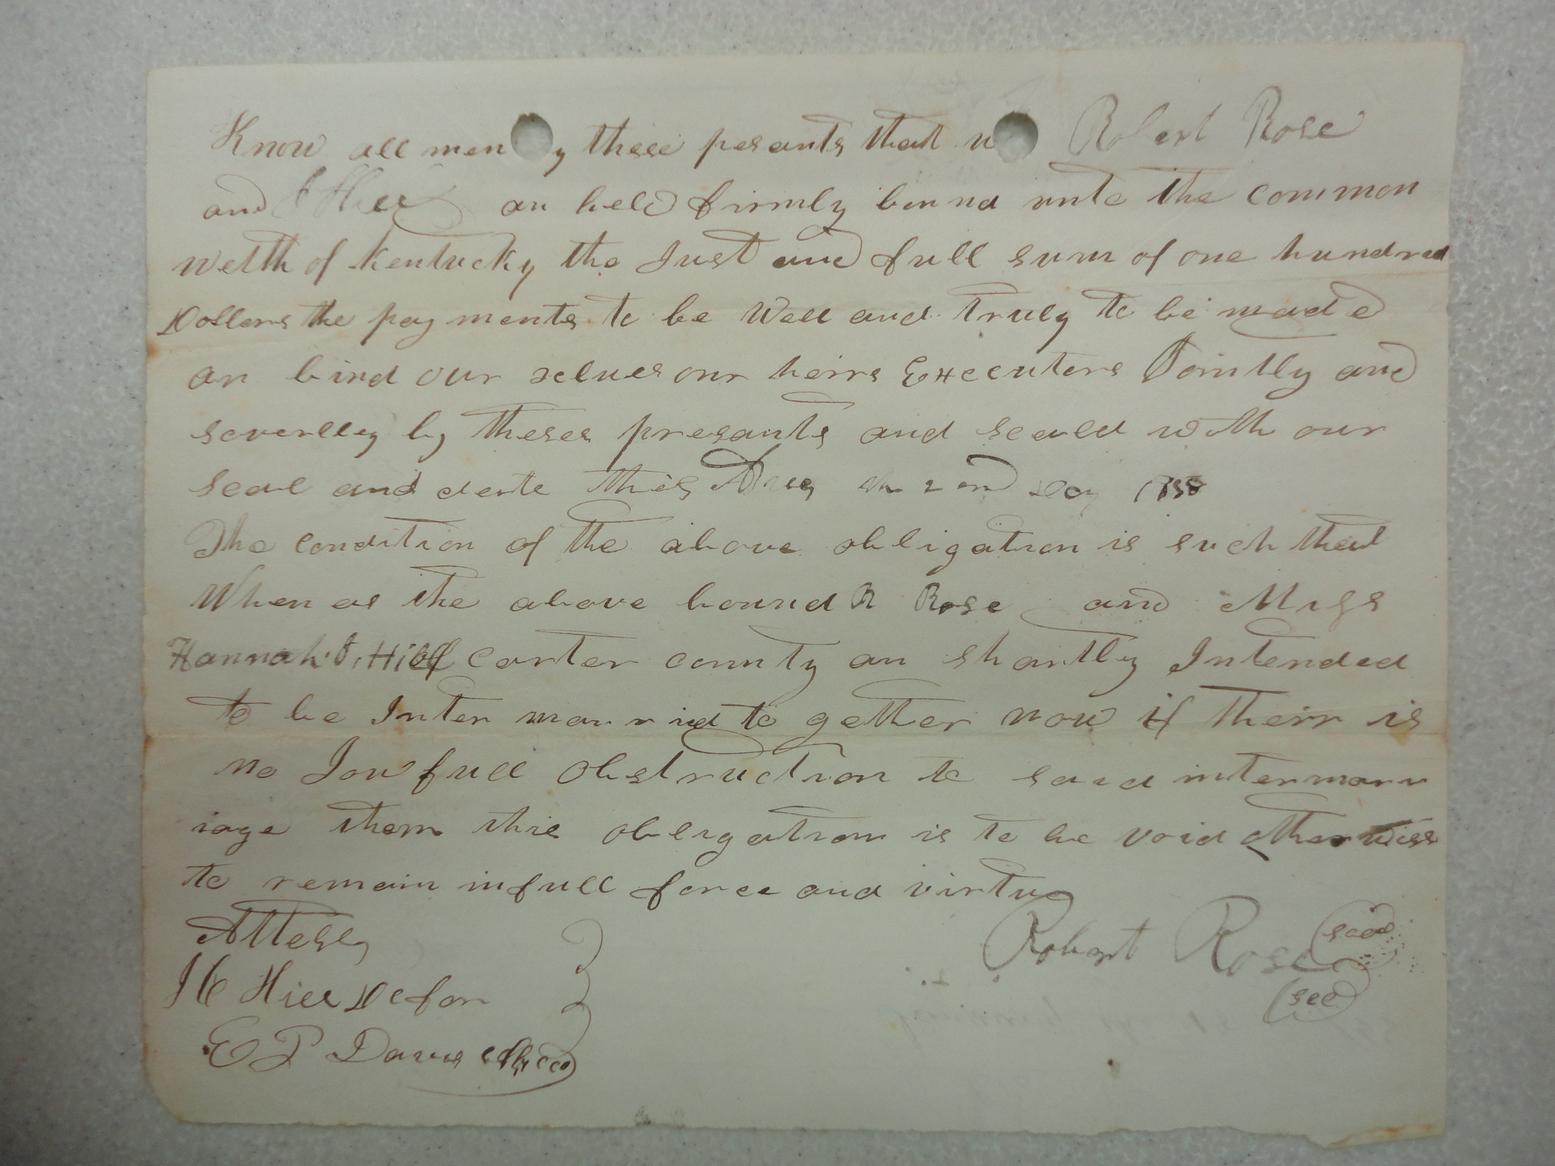 Know all men y these pesants that w Robert Rose
and Hill ar held firmly bound unto the common
welth of Kentucky the Just and full sum of one hundred
Dollers the payments to be Well and truly to be made
an bind our selves our heirs Executers Jointly and
severlley by theses presants and seald with our
seal and date this Aug 2nd Day 1858
The condition of the above obligation is such that
When as the above bound R Rose and Miss
Hannah J. Hill of carter county ar shortly Intended
to be Inter marrid to gether now if their is
no Law full obstruction to said intermarr
iage then this obligation is to be void otherwise
to remain in full force and virtue
Attest
J C Hill De for Robert Rose (seal)
E P Davis (seal)